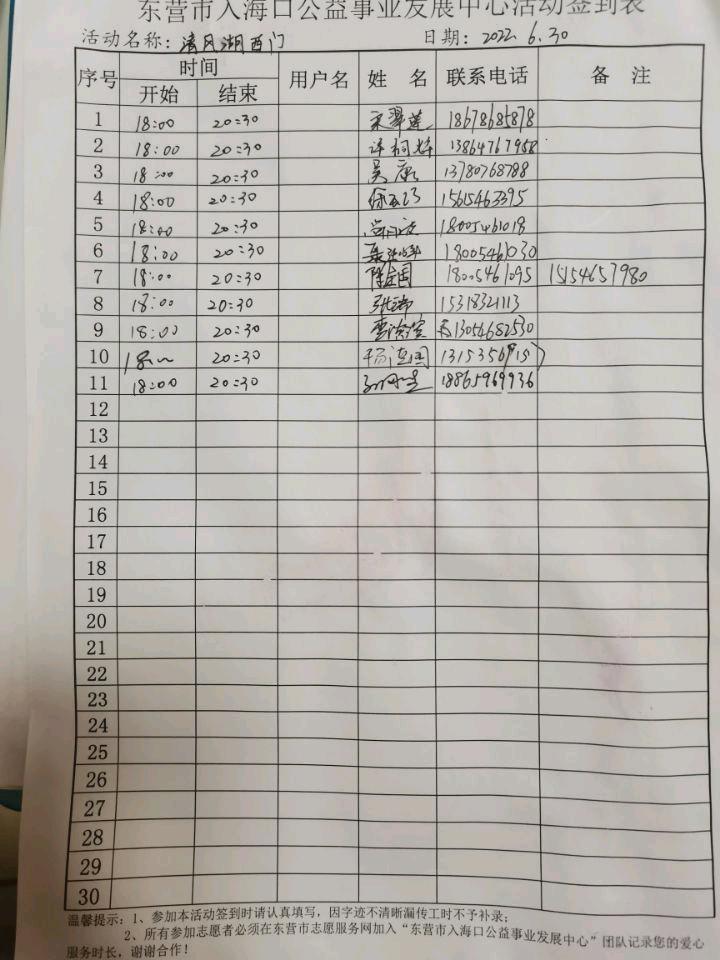 东营市入海口公益事业发展中心活动签到表
活动名称：清风湖西门 日期：2022.6.30
序号 时间 用户名 姓 名 联系电话 备 注
开始 结束
1 18:00 20:30 18678685878
2 18:00 20:30 13864767958
3 18:00 20:30 吴康 13780768788
4 18:00 20:30 15615463395
5 18:00 20:30 18005461018
6 18:00 20:30 18005461030
7 18:00 20:30 陈金国 18005461095 15154657980
8 18:00 20:30 张沛 15318321113
9 18:00 20:30 李滨滨 13054682530
10 20:30 杨连国
11 18:00 20:30 18865969936
12
13
14
15
16
17
18
19
20
21
22
23
24
25
26
27
28
29
30
温馨提示：1、参加本活动签到时请认真填写，因字迹不清晰漏传工时不予补录；
2、所有参加志愿者必须在东营市志愿服务网加入“东营市入海口公益事业发展中心”团队记录您的爱心
服务时长，谢谢合作！